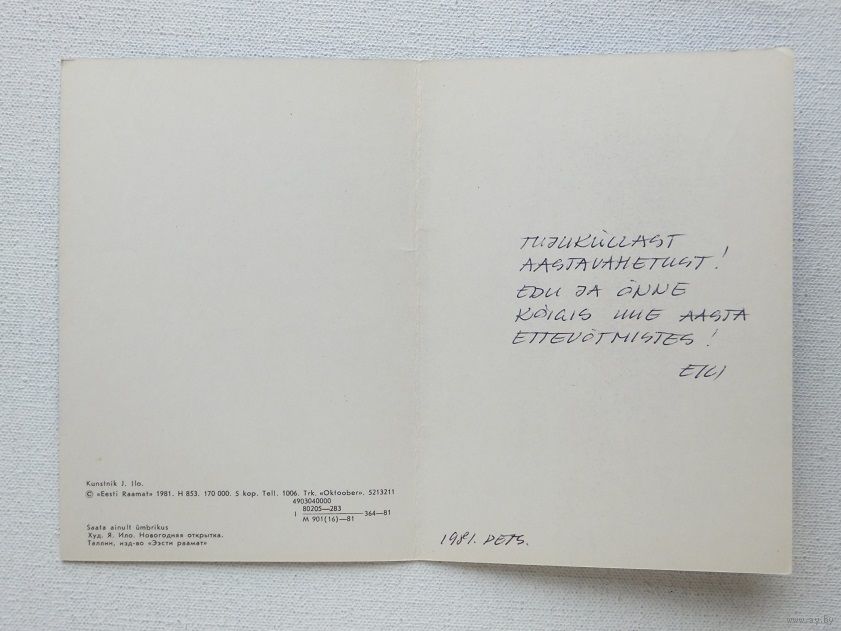 TUJUKÜLLAST
AASTAVAHETUST!
EDU JA ÕNNE
KÕIGIS UUE AASTA
ETTEVÕTMISTES!
1981. DETS.
Kunstnik J. Ilo.
© «Eesti Raamat» 1981. H 853. 170 000. 5 kop. Tell. 1006. Trk. «Oktoober». 5213211
4903040000
I 80205—283 364—81
M 901(16)—81
Saata ainult ümbrikus
Худ. Я. Ило. Новогодняя открытка.
Таллин, изд-во «Ээсти раамат»
www.ay.by